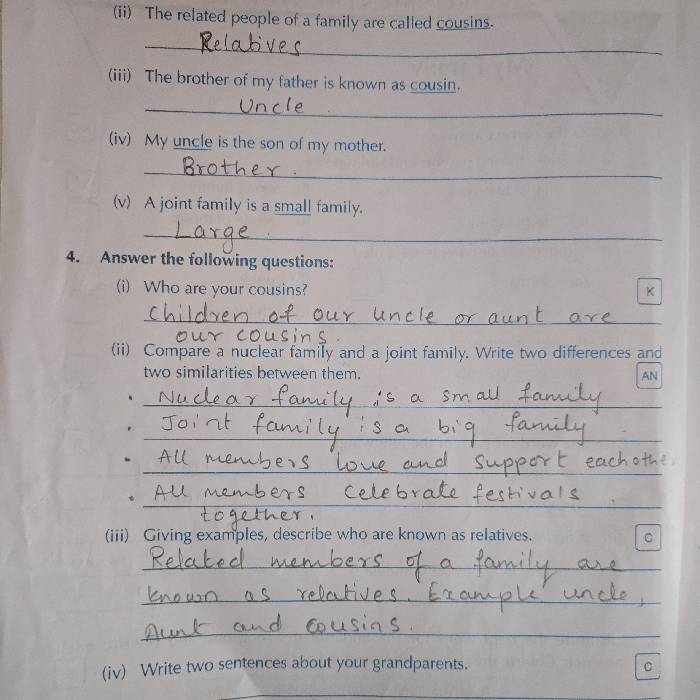 (ii) The related people of a family are called cousins.
Relatives
(iii) The brother of my father is known as cousin.
Uncle
(iv) My uncle is the son of my mother.
Brother.
(v) A joint family is a small family.
Large.
4. Answer the following questions:
(i) Who are your cousins? K
Children of our uncle or aunt are
our cousins.
(ii) Compare a nuclear family and a joint family. Write two differences and
two similarities between them. AN
• Nuclear family is a small family
• Joint family is a big family
• All members love and support each othe
• All members celebrate festivals
together.
(iii) Giving examples, describe who are known as relatives. C
Related members of a family are
known as relatives. Example uncle,
Aunt and cousins.
(iv) Write two sentences about your grandparents. C